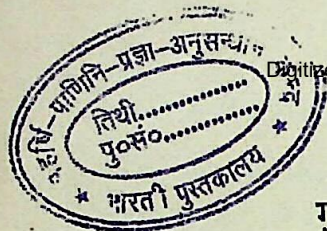 महर्षि-पाणिनि-प्रज्ञा-अनुसन्धान
तिथी..................
पु०सं०..................
* भारती पुस्तकालय *
Digitize